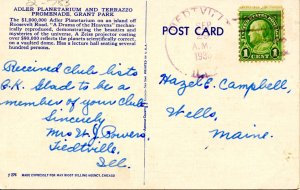 ADLER PLANETARIUM AND TERRAZZO
PROMENADE, GRANT PARK
The $1,000,000 Adler Planetarium on an island off
Roosevelt Road. "A Drama of the Heavens" mechan-
ically reproduced, demonstrating the beauties and
mysteries of the universe. A Zeiss projector costing
over $90,000 reflects the planets scientifically correct,
on a vaulted dome. Has a lecture hall seating several
hundred persons.
Received club lists
O.K. Glad to be a
member of your club.
Sincerely
Mrs W J Bowers
Tiedtville,
Ill.
MADE EXPRESSLY FOR MAX RIGOT SELLING AGENCY, CHICAGO
POST CARD
TIEDTVILLE
A.M.
ILL.
1 CENT 1
Hazel E. Campbell,
Wells,
Maine.